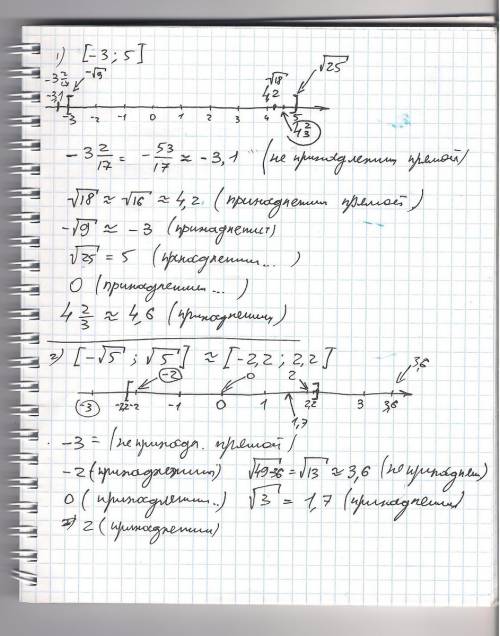 1) [-3; 5]
-3 2/17 -√9 √18 √25
-3,1 4,2
-3 -2 -1 0 1 2 3 4 5
4 2/3
-3 2/17 = -53/17 ≈ -3,1 (не принадлежит прямой)
√18 ≈ √16 ≈ 4,2 (принадлежит прямой)
-√9 ≈ -3 (принадлежит)
√25 = 5 (принадлежит...)
0 (принадлежит...)
4 2/3 ≈ 4,6 (принадлежит)
2) [-√5; √5] ≈ [-2,2; 2,2]
-2 0 2 3,6
-3 -2,2 -2 -1 0 1 2,2 3 3,6
1,7
-3 = (не принадл. прямой)
-2 (принадлежит) √49-36 = √13 ≈ 3,6 (не принадлеж)
0 (принадлежит..) √3 = 1,7 (принадлежит)
2 (принадлежит)